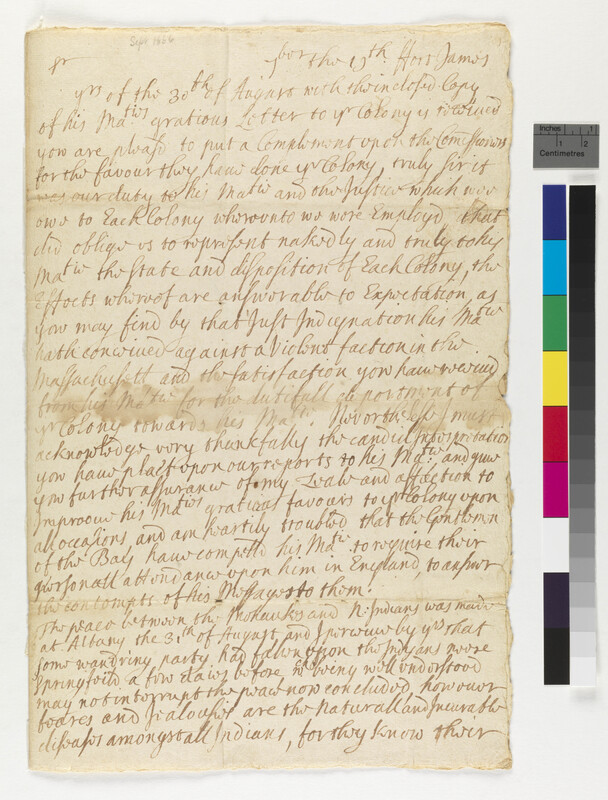 Sept 1666
Sr 7ber the 19th Fort James
yrs of the 30th of August with the inclosed Copy
of his Maties gratious Letter to yr Colony is received
you are pleasd to put a Complement upon the Comissionrs
for the favour they have done yr Colony, truly sir it
was our duty to his Matie and the Justice which wee
owe to Each Colony whereunto we were Employd that
did oblige us to represent nakedly and truly to his
Matie the State and disposition of Each Colony, the
Effects whereof are answerable to Expectation, as
you may find by that Just Indignation his Matie
hath conceived against a Violent faction in the
Massachusetts and the satisfaction you have received
from his Matie for the dutifull deportment of
yr Colony towards his Matie. Nevertheless I must
acknowledge very thankfully the candid Interpretation
you have plact upon our reports to his Matie and give
you further assurance of my Zeale and affection to
Improove his Maties gratious favours to yr Colony upon
all occasions and am heartily troubled that the Gentlemen
of the Bay have compelld his Matie to require their
personall attendance upon him in England, to answer
the contempts of his Messages to them.
The peace between the Mohauks and No: Indians was made
at Albany the 31th of August and I perceive by yrs that
some wandring party had falen upon the Indians neere
Springfeild a few daies before being well understood
may not interrupt the peace now concluded, however
feares and Jealousies are the naturall and Incurable
diseases amongst all Indians, for they know their
Inches 1 2
Centimetres